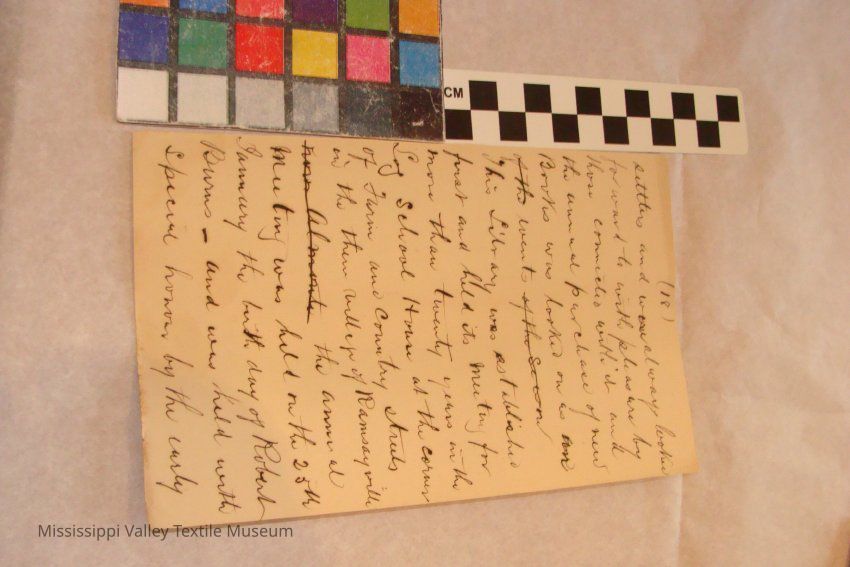 (18)
settlers and was always looked
forward to with pleasure by
those connected with it and
the annual purchase of new
Books was looked on as one
of the events of the Season
This Library was established
first and held its meeting for
more than twenty years in the
Log School House at the corner
of Farm and Country Streets
in the then village of Ramsayville
now Almonte the annual
Meeting was held on the 25th
January the birth day of Robert
Burns - and was held with
Special honour by the early
CM
Mississippi Valley Textile Museum